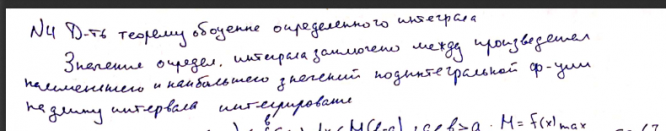 N4 Д-ть теорему об оценке определенного интеграла
Значение определ. интеграла заключено между произведением
наименьшего и наибольшего значений подинтегральной ф-ции
на длину интервала интегрирования
M(b-a), a<b>a . M = f(x)max